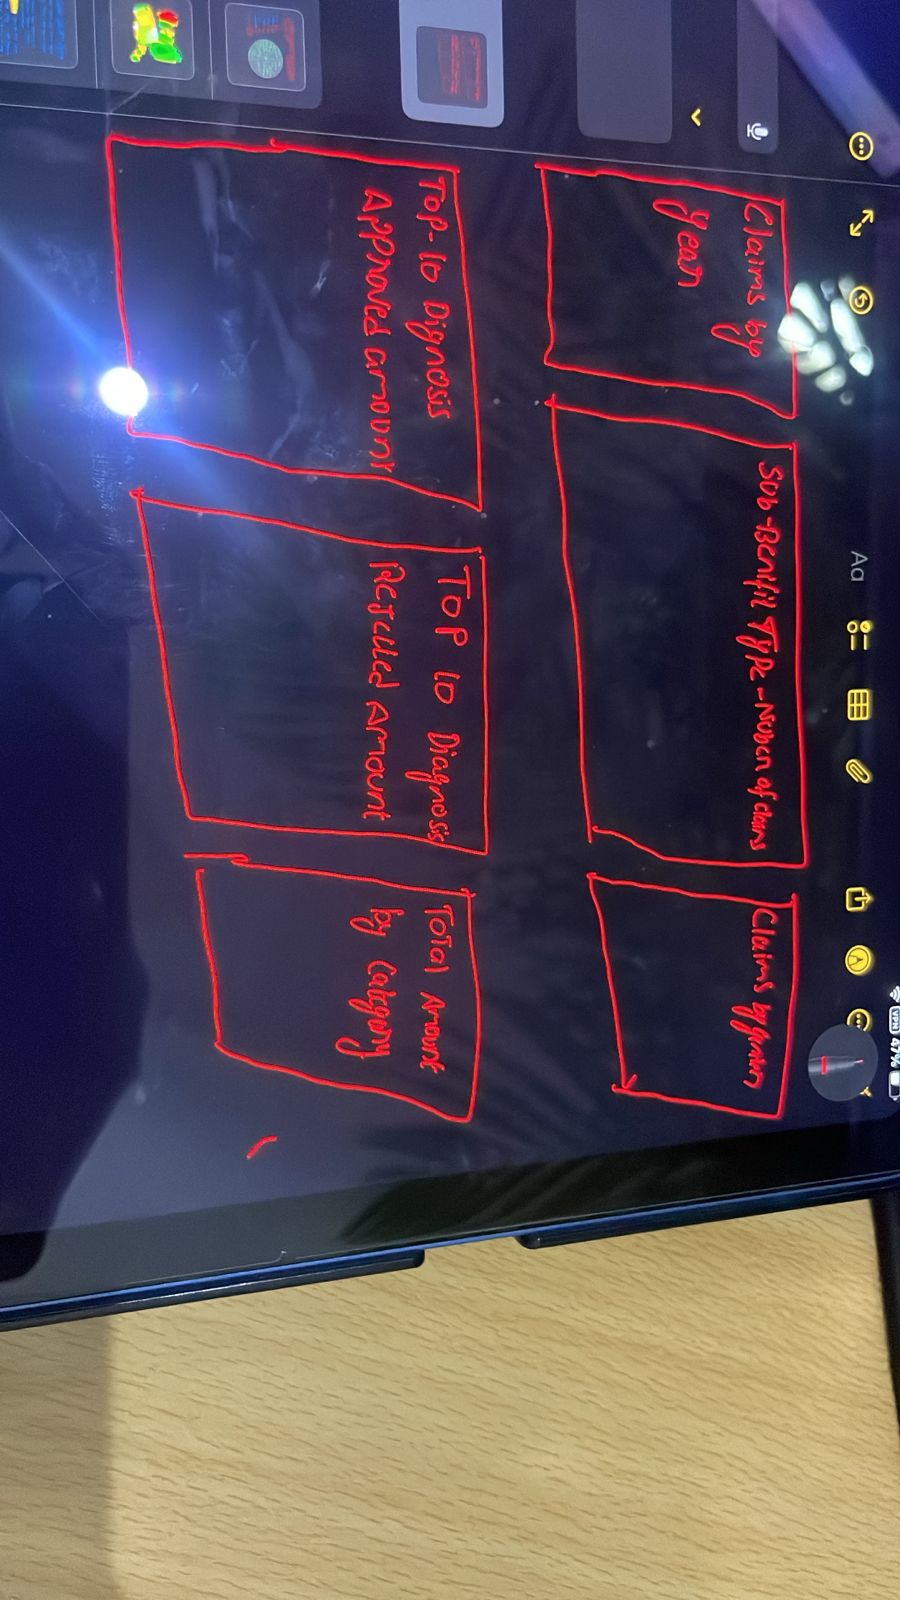 Claims by
year
Sub-Benifit Type - Nuber of claims
Claims by
Top-10 Dignosis
Approved amount
TOP 10 Diagnosis
Amount
Total Amount
by Category
Aa
VPN 47%